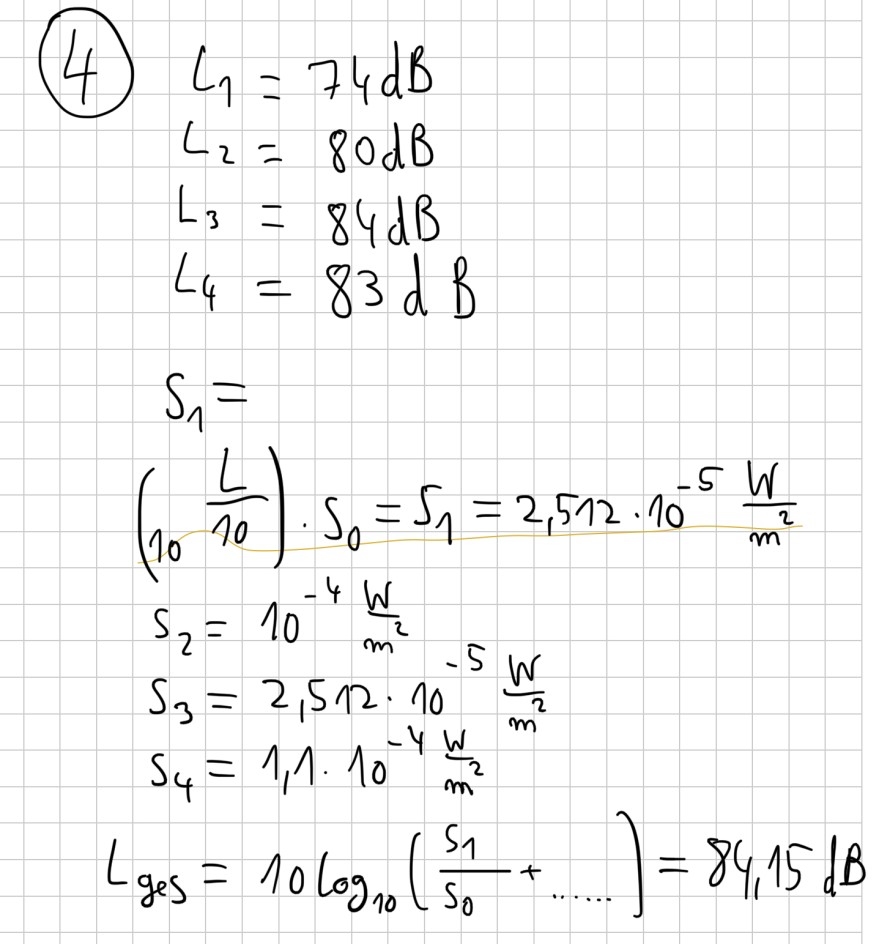 4 L₁ = 74dB
L₂ = 80dB
L₃ = 84dB
L₄ = 83 dB
S₁ =
(10^(L/10)) · S₀ = S₁ = 2,512 · 10⁻⁵ W/m²
S₂ = 10⁻⁴ W/m²
S₃ = 2,512 · 10⁻⁵ W/m²
S₄ = 1,1 · 10⁻⁴ W/m²
L_ges = 10 log₁₀ (S₁/S₀ + ......) = 84,15 dB